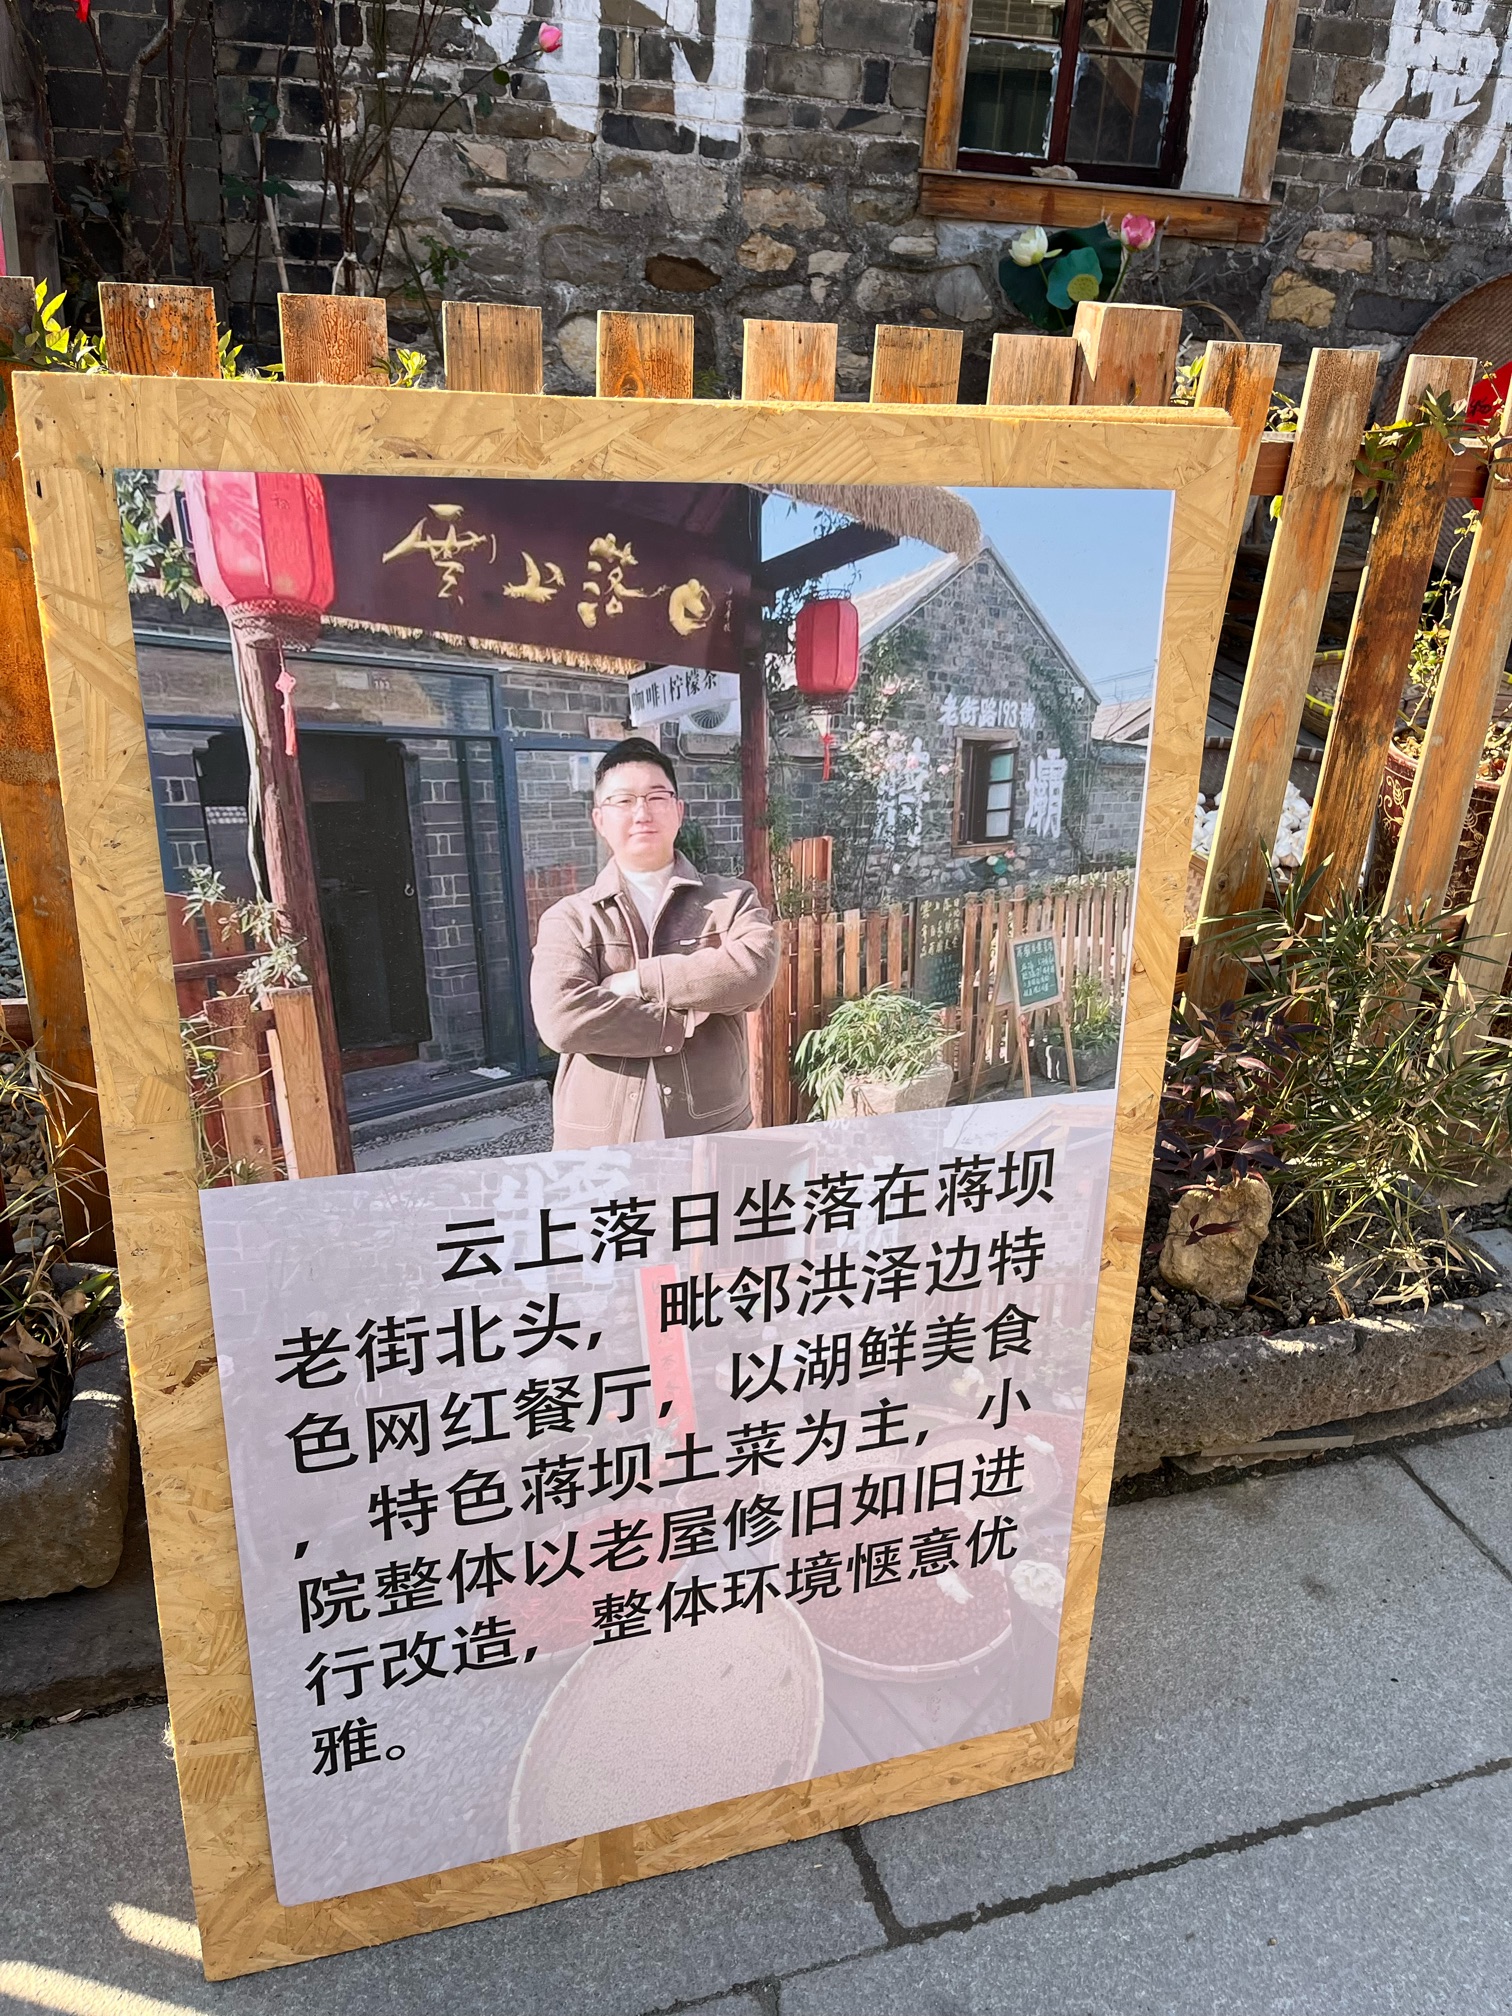 雲上落日
咖啡|柠檬茶
老街路193號
蒋
壩
云上落日坐落在蒋坝
老街北头，毗邻洪泽边特
色网红餐厅，以湖鲜美食
，特色蒋坝土菜为主，小
院整体以老屋修旧如旧进
行改造，整体环境惬意优
雅。